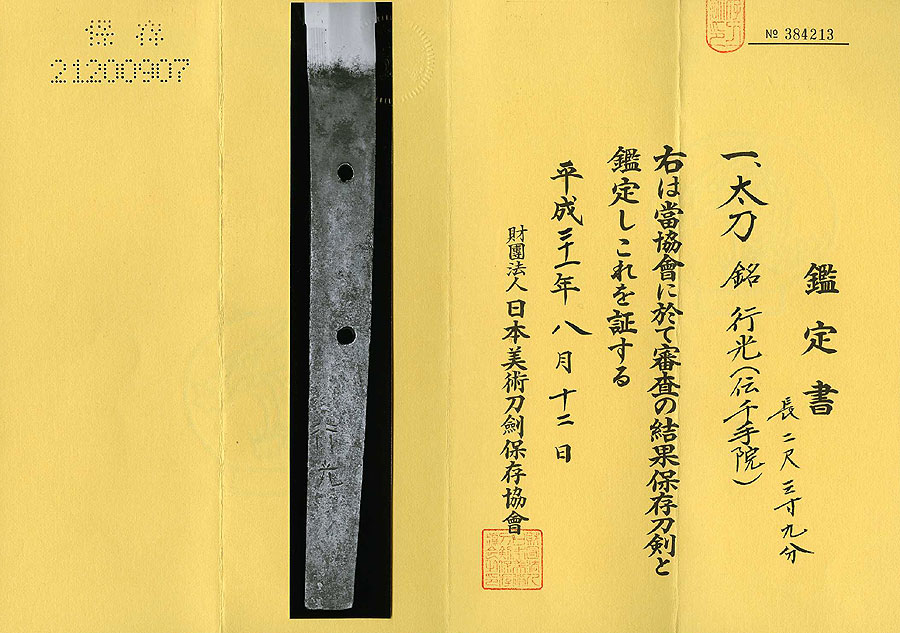 保存
21200907
№ 384213
鑑定書
長二尺三寸九分
一、太刀 銘 行光(伝千手院)
右は當協會に於て審査の結果保存刀剣と
鑑定しこれを証する
平成二十一年八月十二日
財團法人 日本美術刀劍保存協會
行光